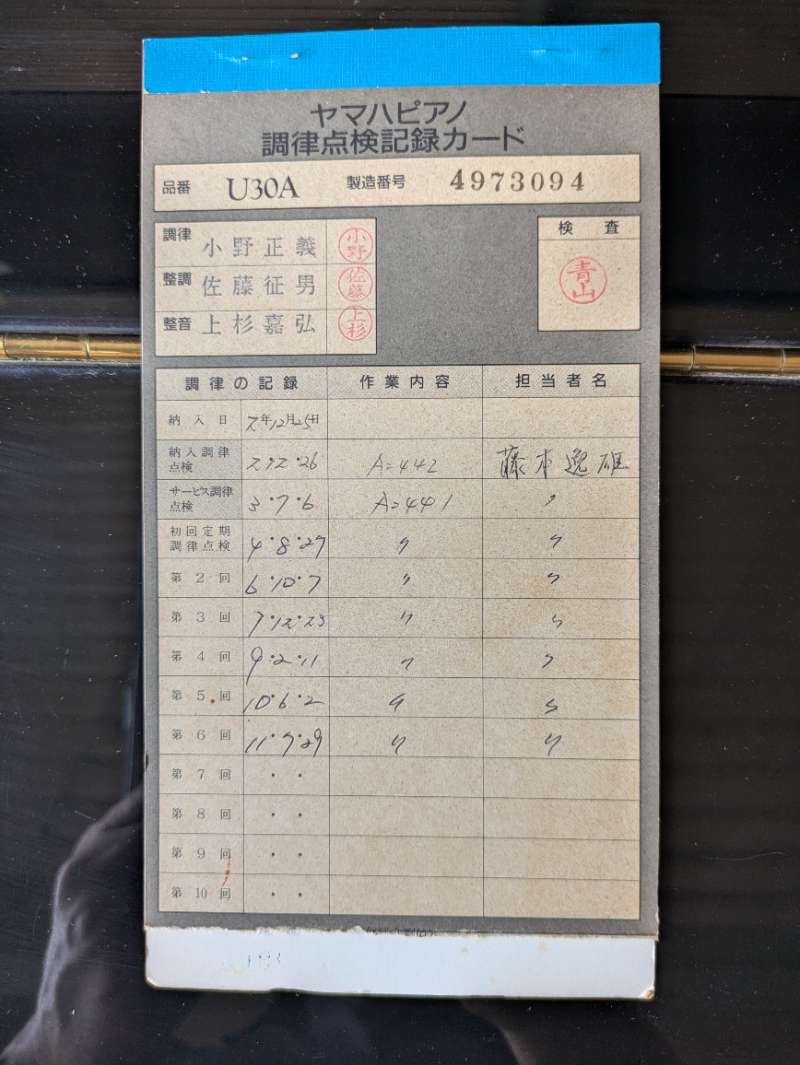 ヤマハピアノ
調律点検記録カード
品番 U30A 製造番号 4973094
調律 小野正義 小野
整調 佐藤征男 佐藤
整音 上杉嘉弘 上杉
検査
青山
調律の記録 作業内容 担当者名
納入日 2年12月25日
納入調律点検 2・12・26 A=442 藤本逸雄
サービス調律点検 3・7・6 A=441 〃
初回定期調律点検 4・8・27 〃 〃
第2回 6・10・7 〃 〃
第3回 7・12・23 〃 〃
第4回 9・2・11 〃 〃
第5回 10・6・2 〃 〃
第6回 11・7・29 〃 〃
第7回 ・ ・
第8回 ・ ・
第9回 ・ ・
第10回 ・ ・